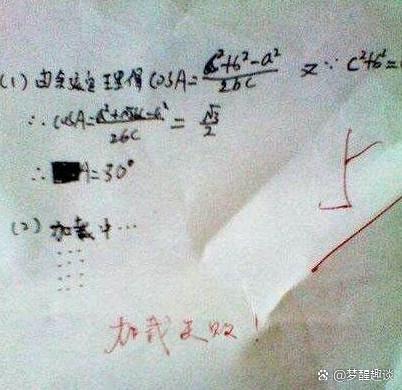 (1) 由余弦定理得 cosA=c²+b²-a²/2bc 又∵ c²+b²=
∴ cosA=a²+√3bc-a²/2bc=√3/2
∴ A=30°
(2) 加载中…
加载失败!
@梦醒趣谈